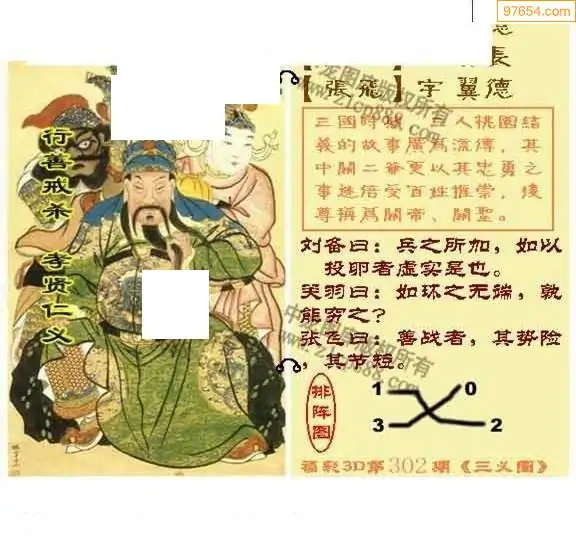 97654.com
德
长
【張飛】字翼德
行善戒杀 孝贤仁义
三國時候，三人桃園結
義的故事廣爲流傳，其
中關二爺更以其忠勇之
事迹倍受百姓推崇，後
尊稱爲關帝、關聖。
刘备曰：兵之所加，如以
投卵者虚实是也。
关羽曰：如环之无端，孰
能穷之？
张飞曰：善战者，其势险
，其节短。
排阵图
1 0
3 2
福彩3D第302期《三义图》